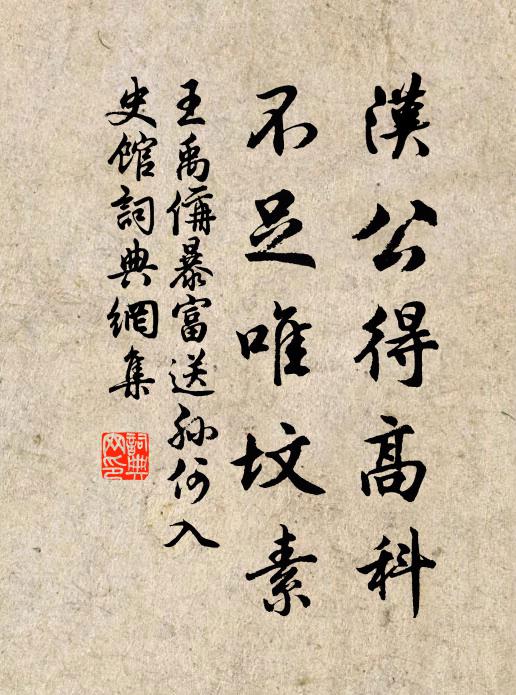 漢公得高科
不足唯墳素
王禹偁暴富送孙何入
史館詞典網集
詞典网印